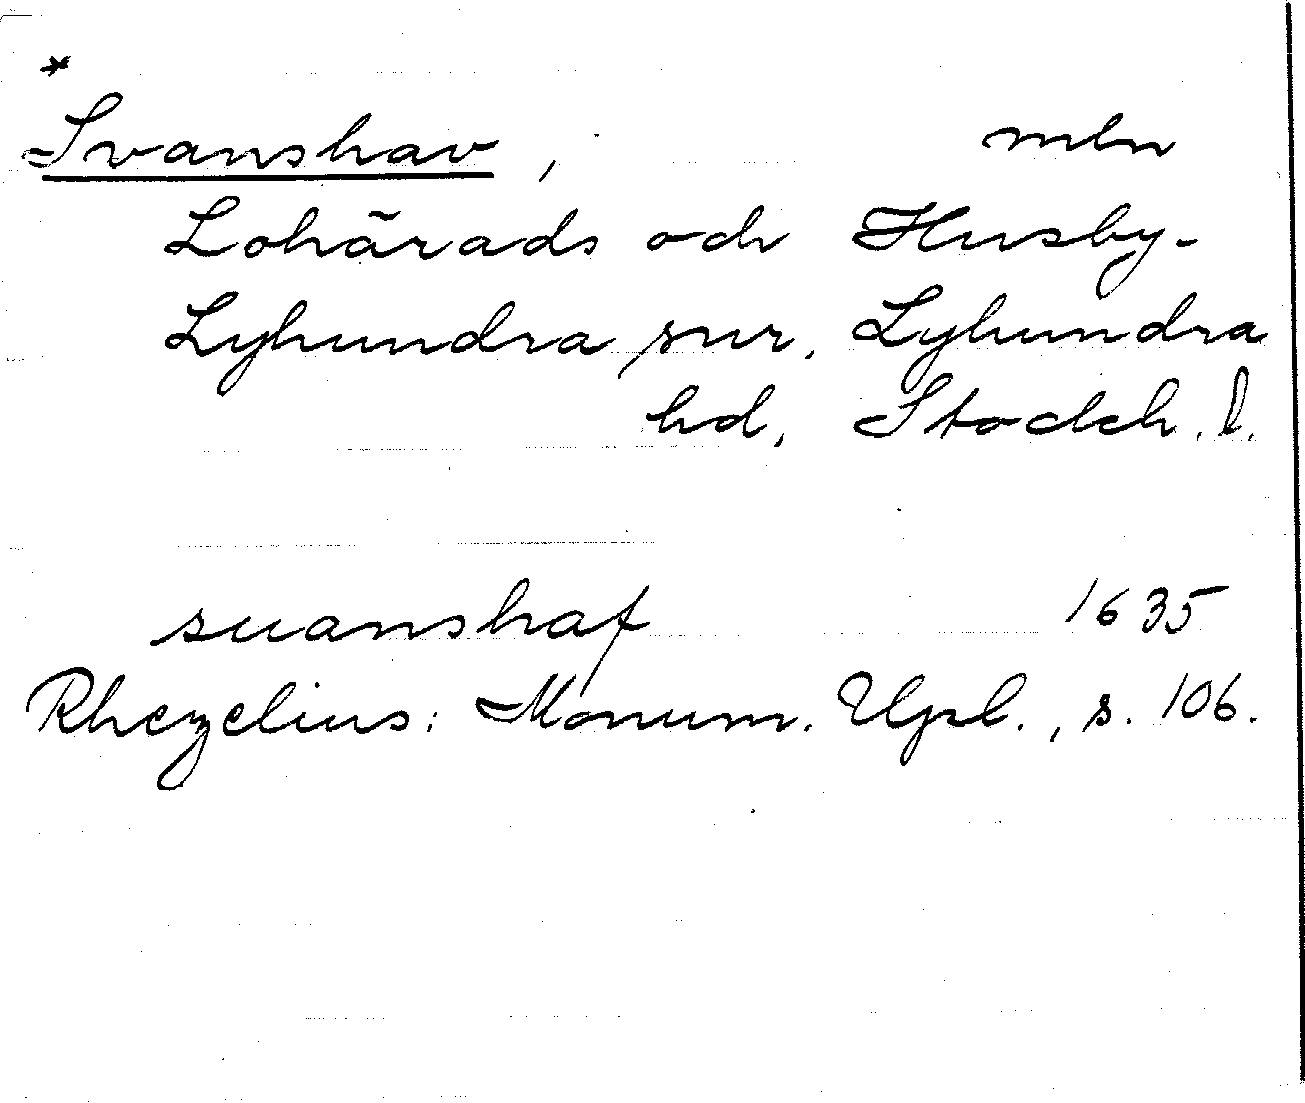 *
Svanshav, mln
Lohärads och Husby-
Lyhundra snr, Lyhundra
hd, Stockh. l.
suanshaf 1635
Rhezelius: Monum. Upl., s. 106.